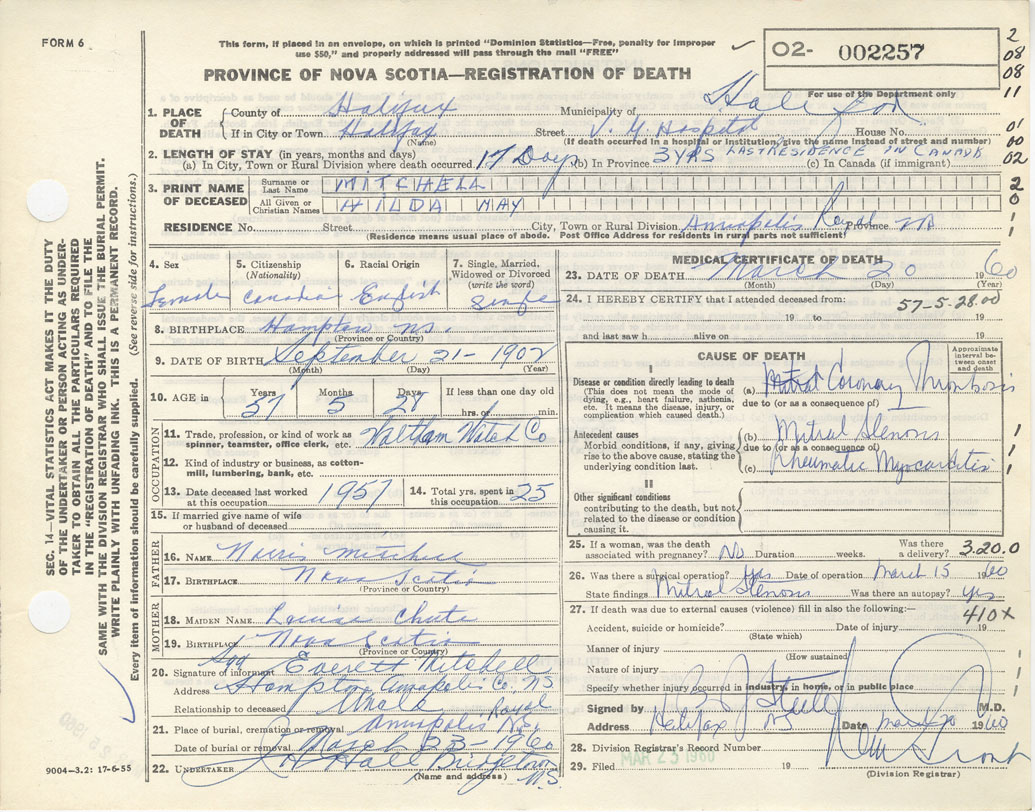 FORM 6
This form, if placed in an envelope, on which is printed "Dominion Statistics—Free, penalty for improper
use $50," and properly addressed will pass through the mail "FREE"
PROVINCE OF NOVA SCOTIA—REGISTRATION OF DEATH
02- 002257
For use of the Department only
2
08
08
11
01
00
02
2
0
1
1
1. PLACE OF DEATH
County of Halifax
Municipality of Halifax
If in City or Town Halifax Street V. G. Hospital House No.
(Name) (If death occurred in a hospital or institution, give the name instead of street and number)
2. LENGTH OF STAY (in years, months and days)
(a) In City, Town or Rural Division where death occurred 17 Days (b) In Province 3 YRS LAST RESIDENCE IN CANADA (c) In Canada (if immigrant)
3. PRINT NAME OF DECEASED
Surname or Last Name MITCHELL
All Given or Christian Names HILDA MAY
RESIDENCE No. Street City, Town or Rural Division Annapolis Royal Province NS
(Residence means usual place of abode. Post Office Address for residents in rural parts not sufficient)
4. Sex Female
5. Citizenship (Nationality) Canadian
6. Racial Origin English
7. Single, Married, Widowed or Divorced (write the word) Single
8. BIRTHPLACE Hampton NS.
(Province or Country)
9. DATE OF BIRTH September 21 - 1902
(Month) (Day) (Year)
10. AGE in Years 57 Months 5 Days 28 If less than one day hrs. or min.
OCCUPATION
11. Trade, profession, or kind of work as spinner, teamster, office clerk, etc. Waltham Watch Co
12. Kind of industry or business, as cotton-mill, lumbering, bank, etc.
13. Date deceased last worked at this occupation 1957
14. Total yrs. spent in this occupation 25
15. If married give name of wife or husband of deceased
FATHER
16. NAME Norris Mitchell
17. BIRTHPLACE Nova Scotia
(Province or Country)
MOTHER
18. MAIDEN NAME Louise Chute
19. BIRTHPLACE Nova Scotia
(Province or Country)
20. Signature of informant Sgd Everett Mitchell
Address Hampton Annapolis Co. NS
Relationship to deceased Uncle
21. Place of burial, cremation or removal Annapolis Royal NS.
Date of burial or removal March 23 - 1960
22. UNDERTAKER Hall Bridgetown N.S.
(Name and address)
MEDICAL CERTIFICATE OF DEATH
23. DATE OF DEATH March 20 1960
(Month) (Day) (Year)
24. I HEREBY CERTIFY that I attended deceased from:
57-5-28.00
19 to 19
and last saw h alive on 19
CAUSE OF DEATH
Approximate interval between onset and death
I
Disease or condition directly leading to death
(This does not mean the mode of dying, e.g., heart failure, asthenia, etc. It means the disease, injury, or complication which caused death.)
(a) Coronary Thrombosis
due to (or as a consequence of)
Antecedent causes
Morbid conditions, if any, giving rise to the above cause, stating the underlying condition last.
(b) Mitral Stenosis
due to (or as a consequence of)
(c) Rheumatic Myocarditis
II
Other significant conditions
contributing to the death, but not related to the disease or condition causing it.
1
1
1
25. If a woman, was the death associated with pregnancy? No Duration weeks. Was there a delivery? 3.20.0
26. Was there a surgical operation? yes Date of operation March 15 1960
State findings Mitral Stenosis Was there an autopsy? yes
27. If death was due to external causes (violence) fill in also the following:—
410x
Accident, suicide or homicide? Date of injury 19
(State which)
Manner of injury
(How sustained)
Nature of injury
Specify whether injury occurred in industry, in home, or in public place
1
1
Signed by Steele M.D.
Address Halifax NS Date March 20 1960
28. Division Registrar's Record Number
29. Filed MAR 25 1960 19
(Division Registrar)
SEC. 14—VITAL STATISTICS ACT MAKES IT THE DUTY
OF THE UNDERTAKER OR PERSON ACTING AS UNDER-
TAKER TO OBTAIN ALL THE PARTICULARS REQUIRED
IN THE "REGISTRATION OF DEATH" AND TO FILE THE
SAME WITH THE DIVISION REGISTRAR WHO SHALL ISSUE THE BURIAL PERMIT.
WRITE PLAINLY WITH UNFADING INK. THIS IS A PERMANENT RECORD.
Every item of information should be carefully supplied. (See reverse side for instructions.)
9004—3.2: 17-6-55